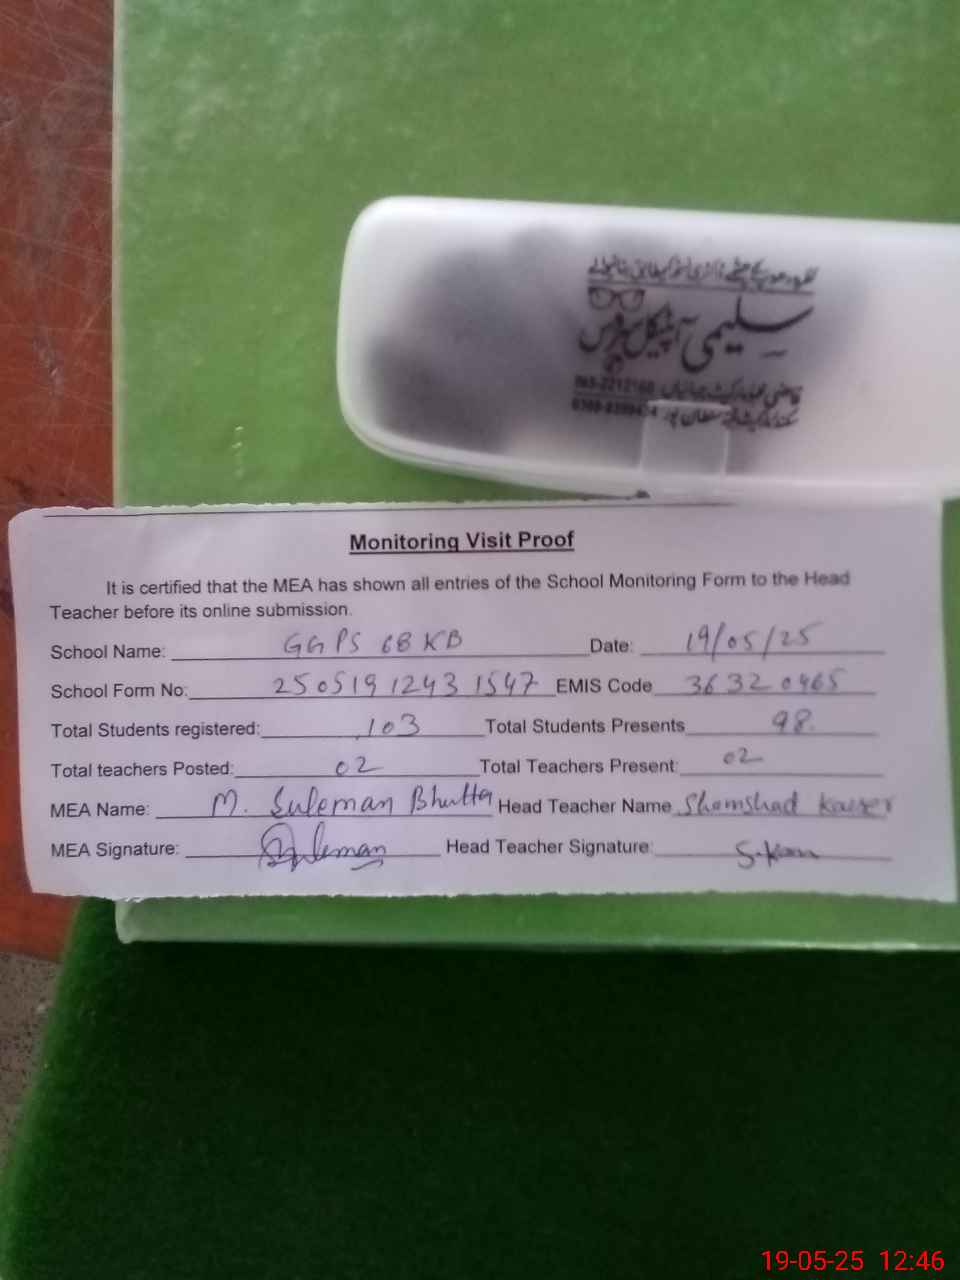 سلیمی آپٹیکل سروس
Monitoring Visit Proof
It is certified that the MEA has shown all entries of the School Monitoring Form to the Head
Teacher before its online submission.
School Name: GGPS 68 KB Date: 19/05/25
School Form No: 25051912431547 EMIS Code 36320465
Total Students registered: 103 Total Students Presents 98.
Total teachers Posted: 02 Total Teachers Present: 02
MEA Name: M. Suleman Bhutta Head Teacher Name Shamshad Kauser
MEA Signature: Suleman Head Teacher Signature:
19-05-25 12:46